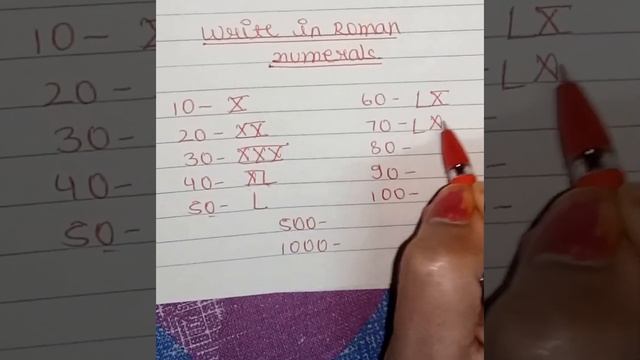 Write in Roman
numerals
10- X
20- XX
30- XXX
40- XL
50- L
60- LX
70- LX
80-
90-
100-
500-
1000-